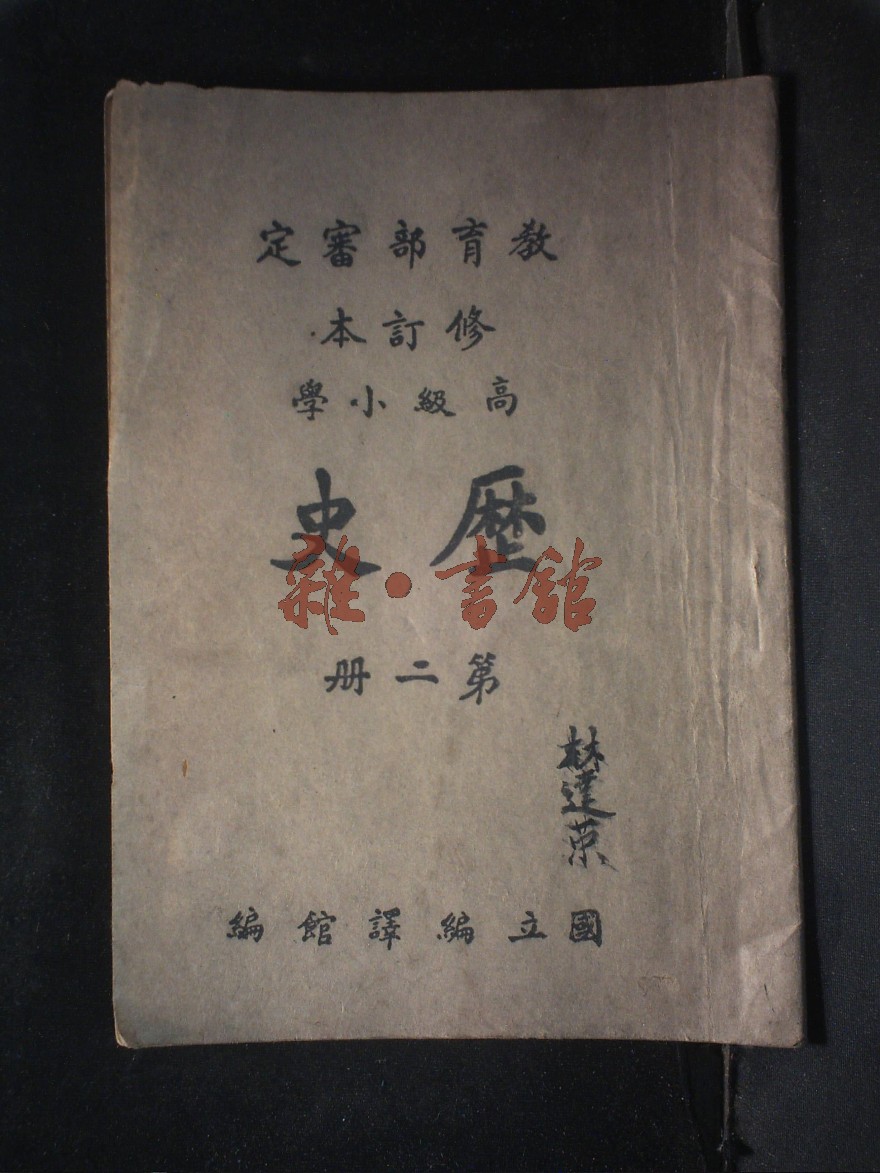 教育部審定
修訂本
高級小學
歷史
雜·書館
第二冊
林達榮
國立編譯館編